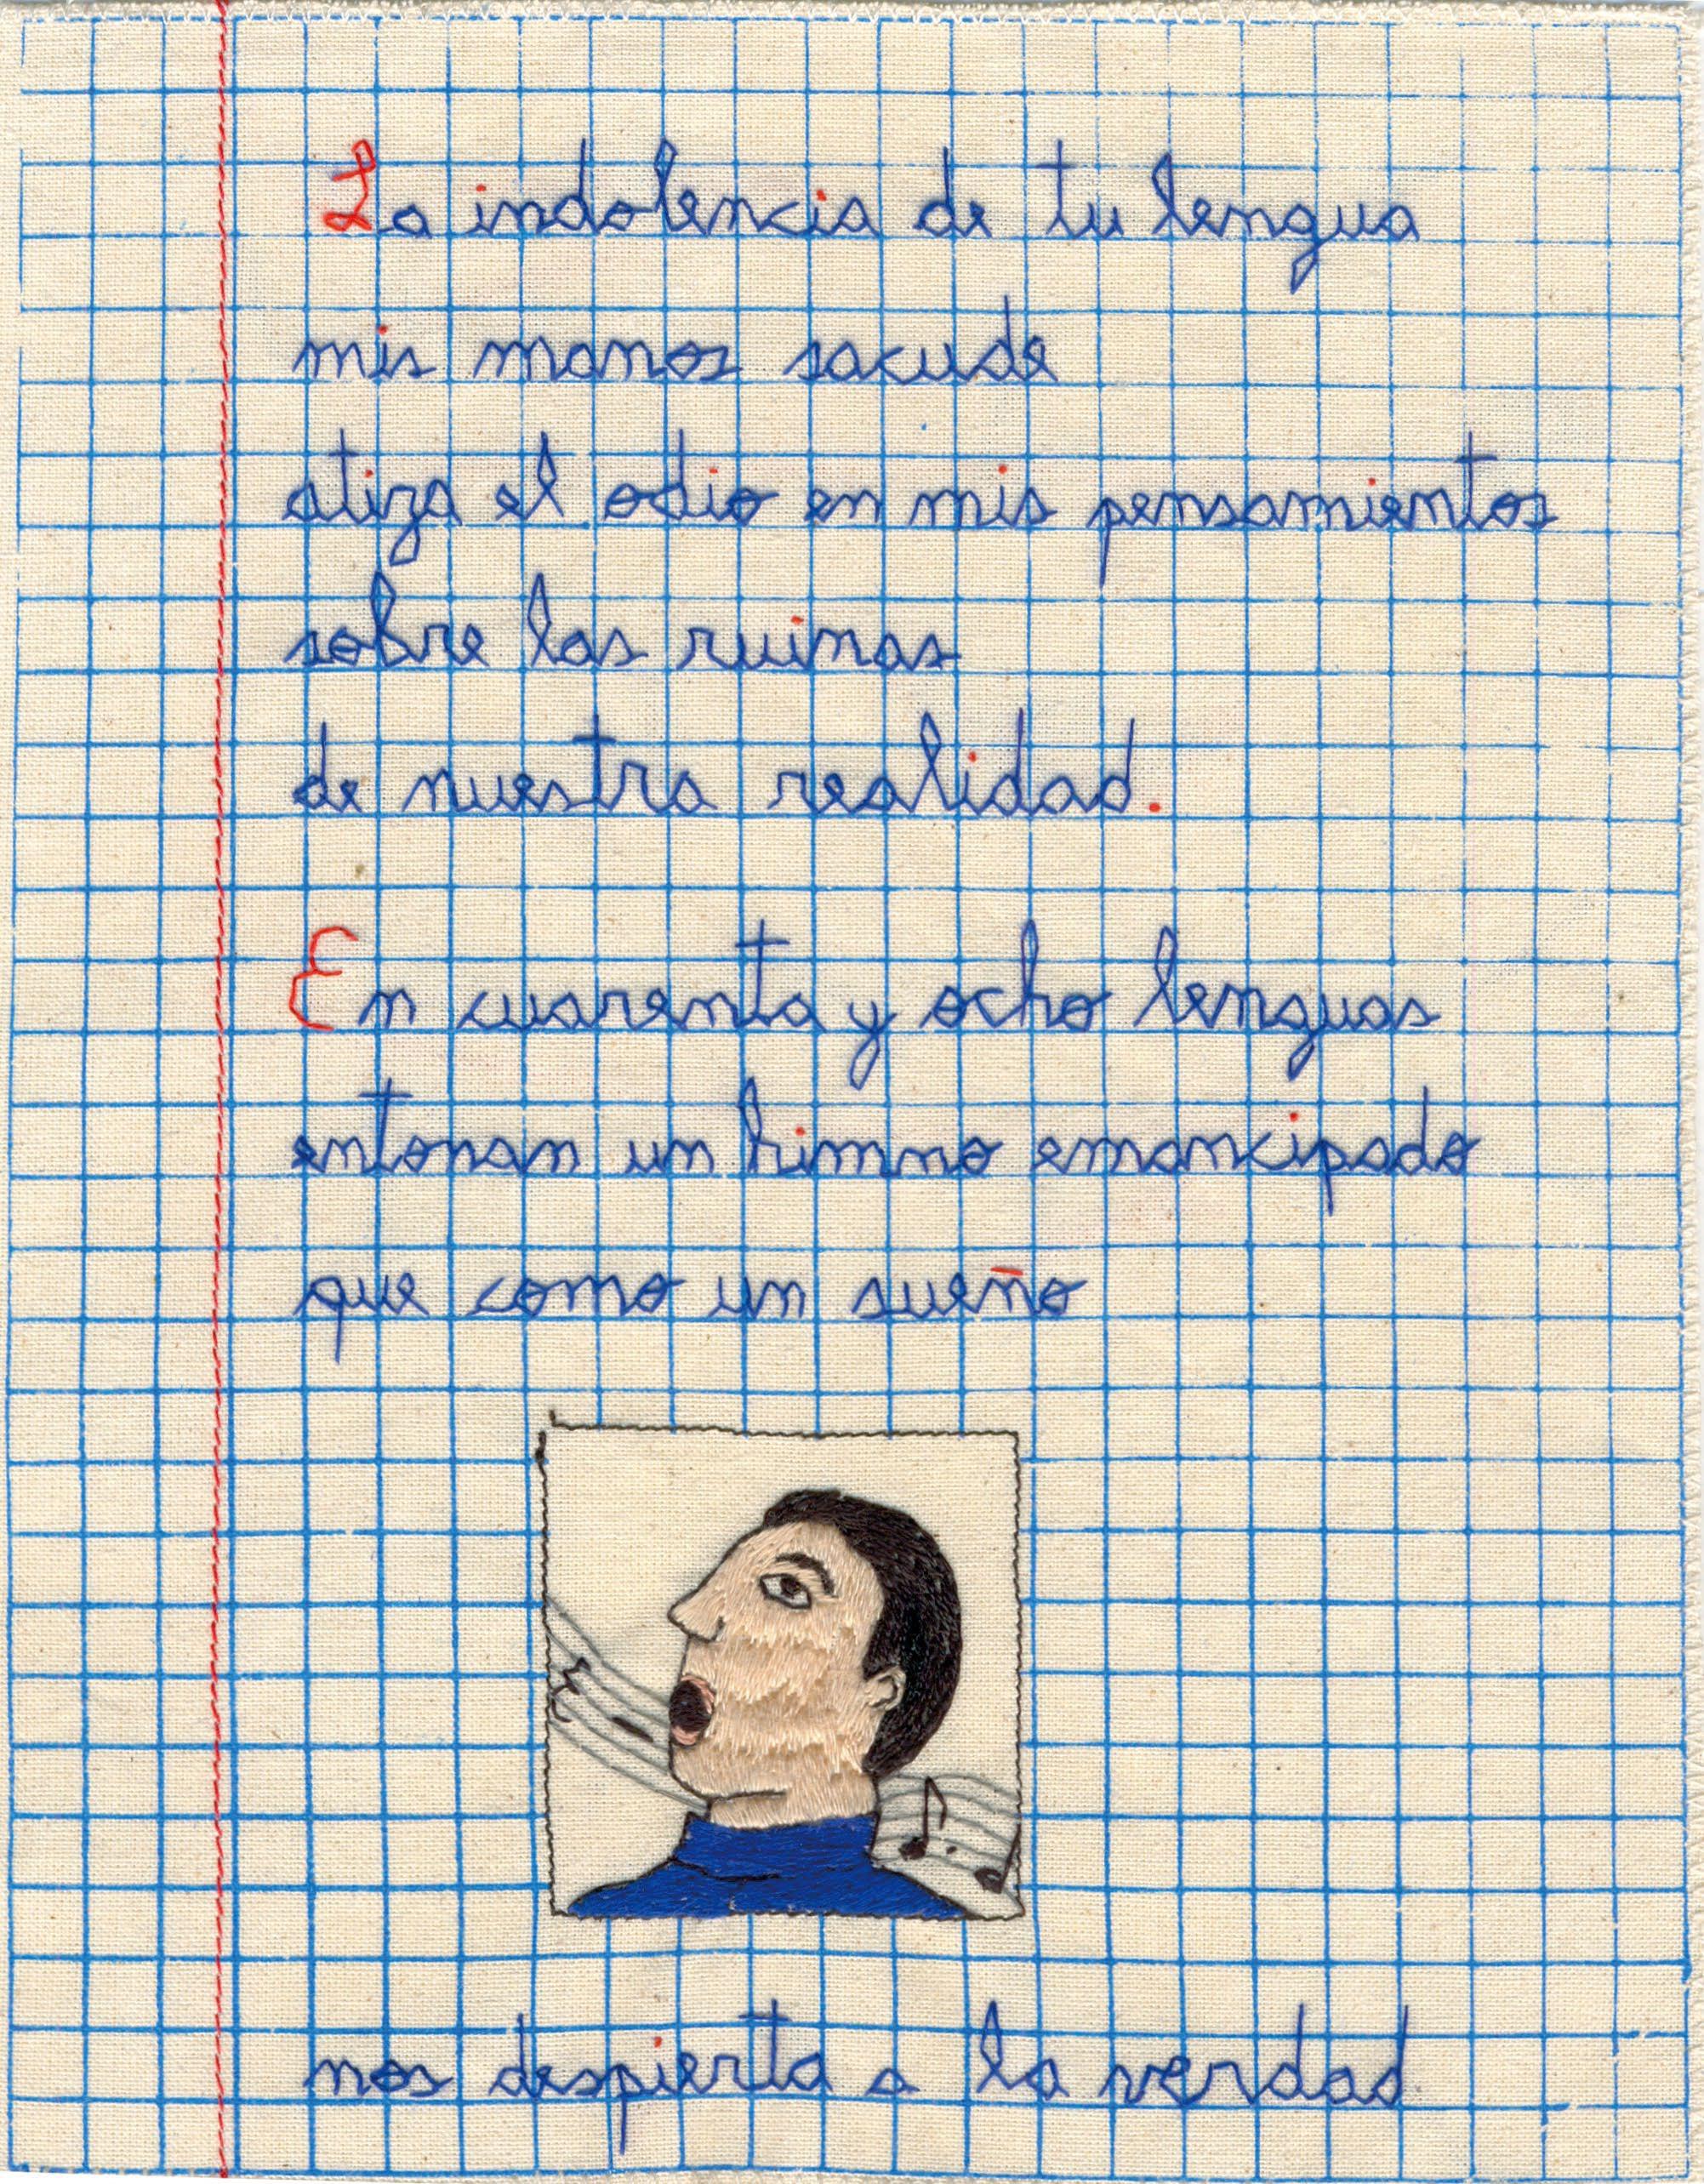 La indolencia de tu lengua
mis manos sacude
atiza el odio en mis pensamientos
sobre las ruinas
de nuestra realidad.
En cuarenta y ocho lenguas
entonan un himno emancipado
que como un sueño
nos despierta a la verdad